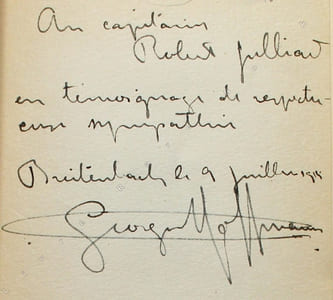 Au capitaine
Robert Julliart
en témoignage de respectu-
euse sympathie
Breitenbach, le 9 juillet
Georges Hoffmann